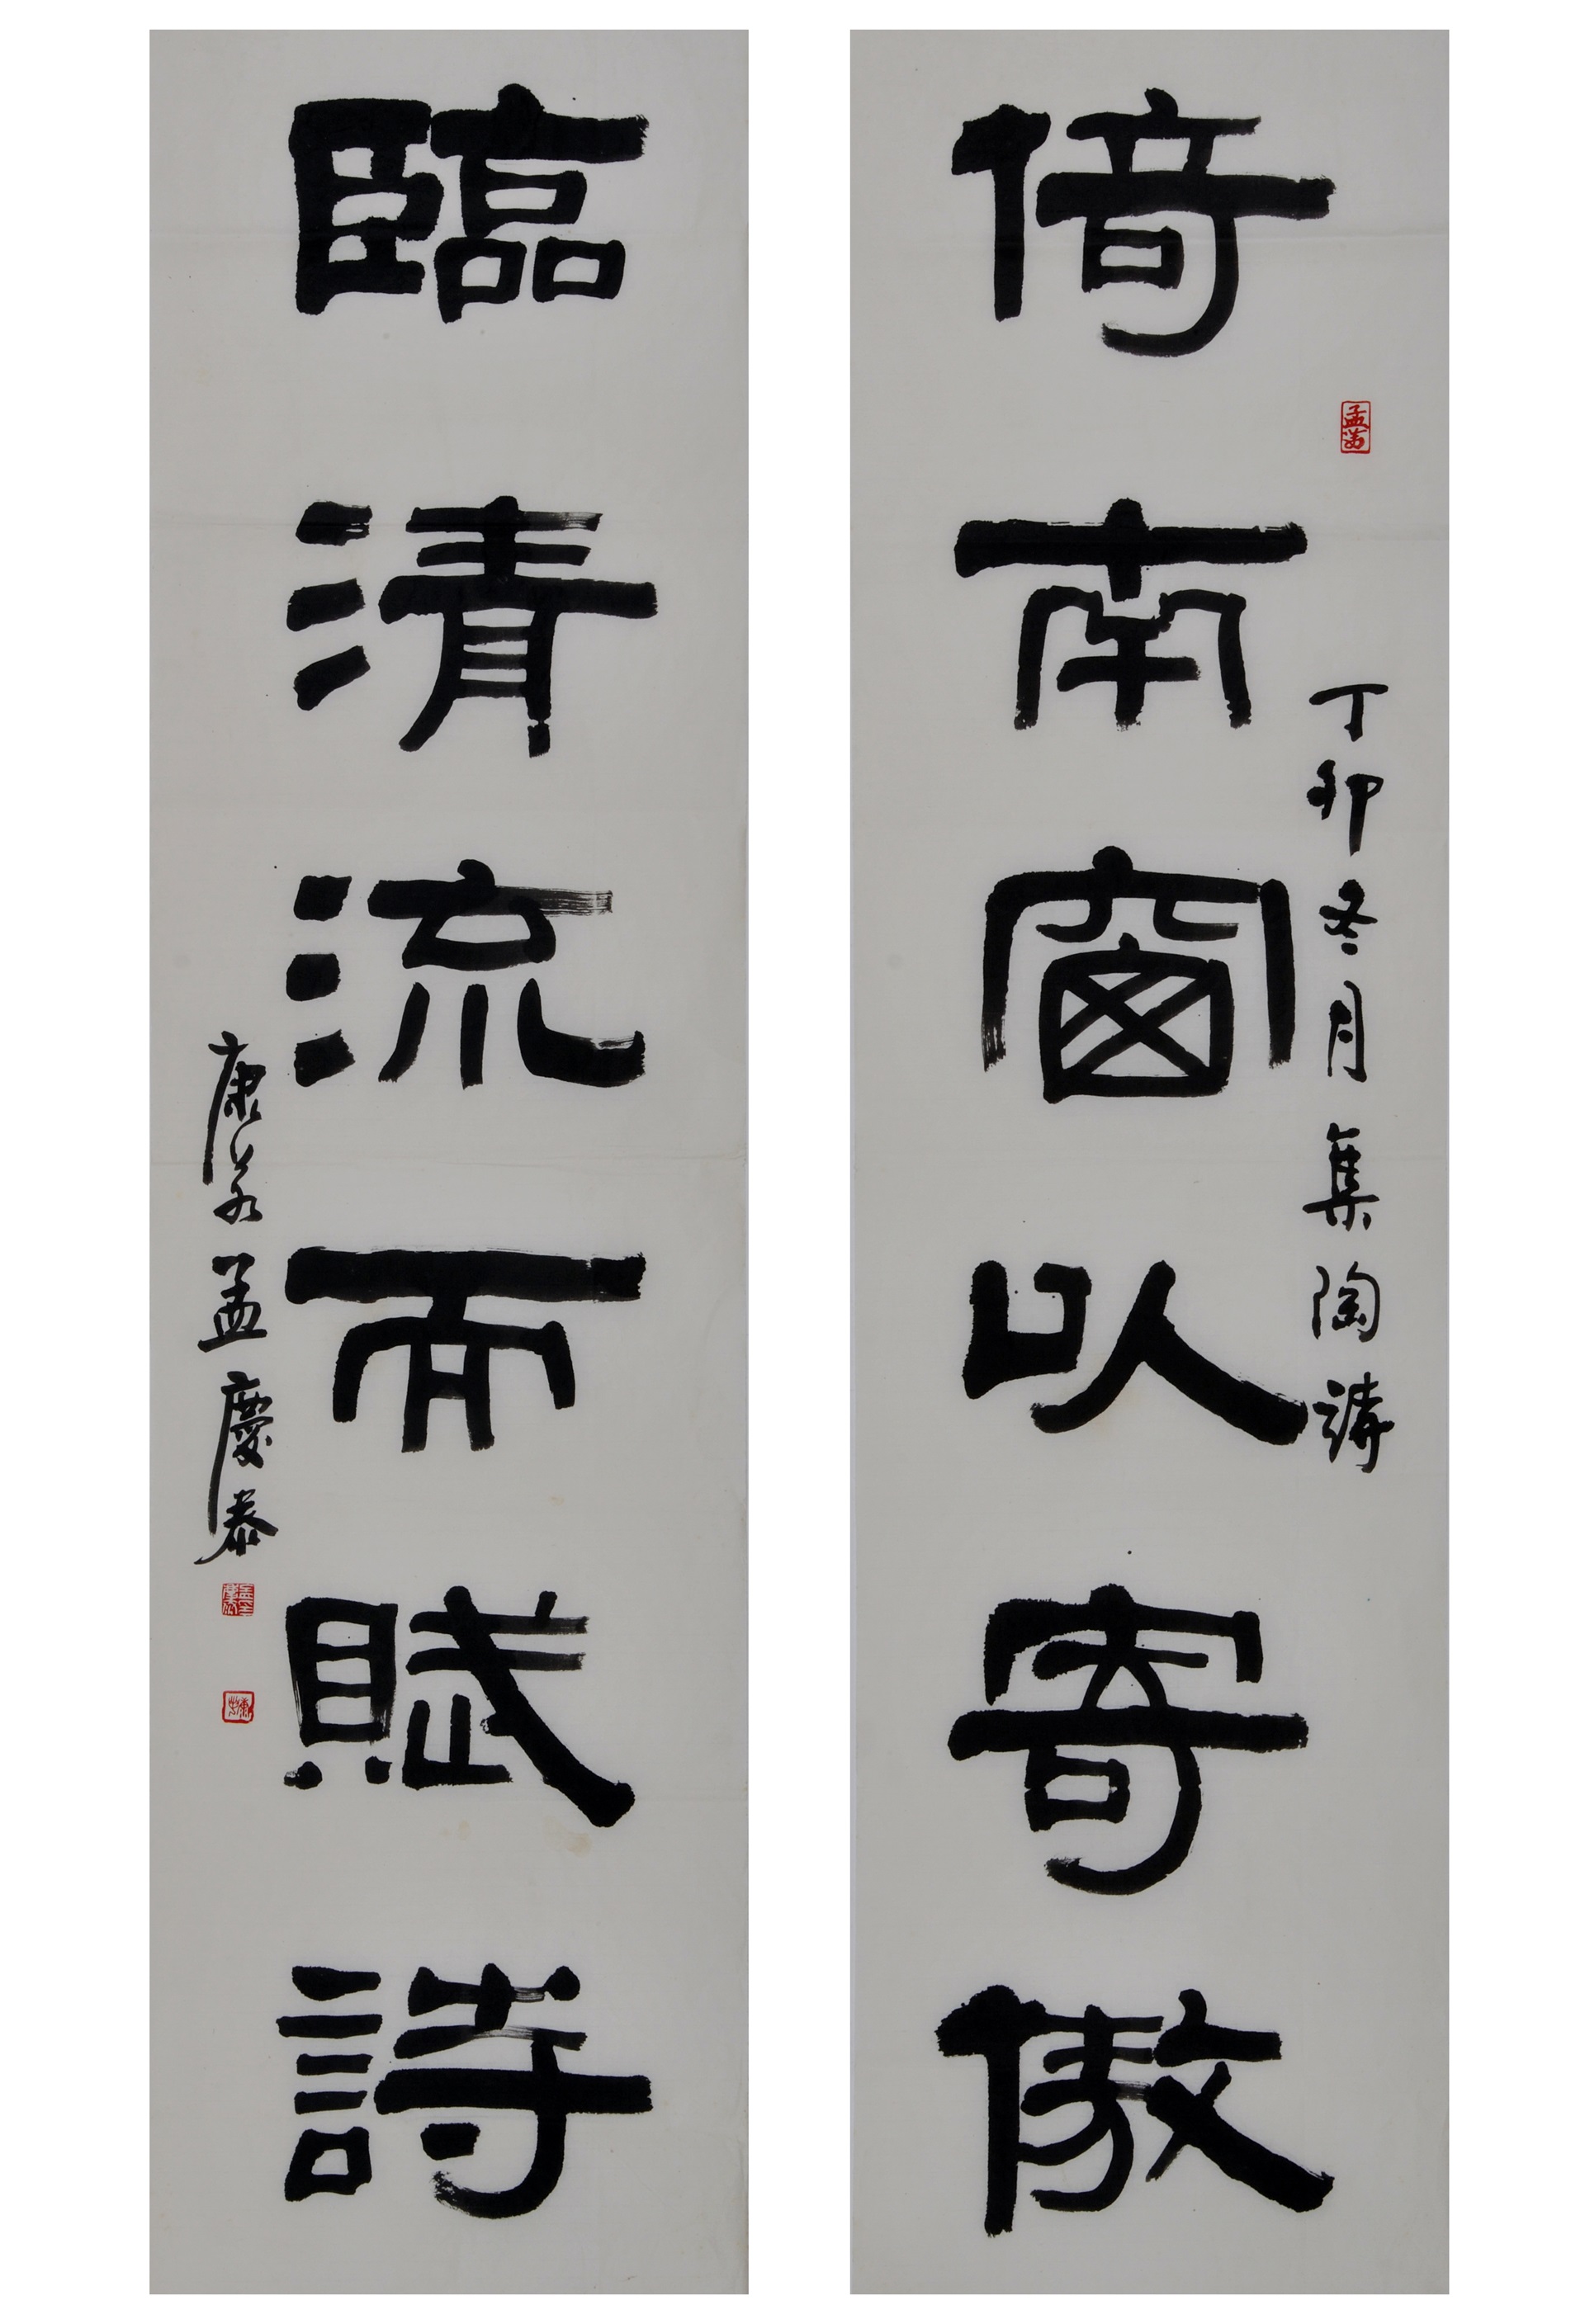 倚南窗以寄傲
丁卯冬月集陶诗
臨清流而賦詩
康若孟慶泰